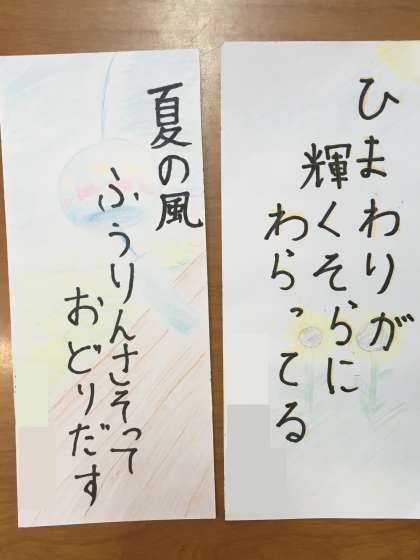 ひまわりが
輝くそらに
わらってる
夏の風
ふうりんさそって
おどりだす